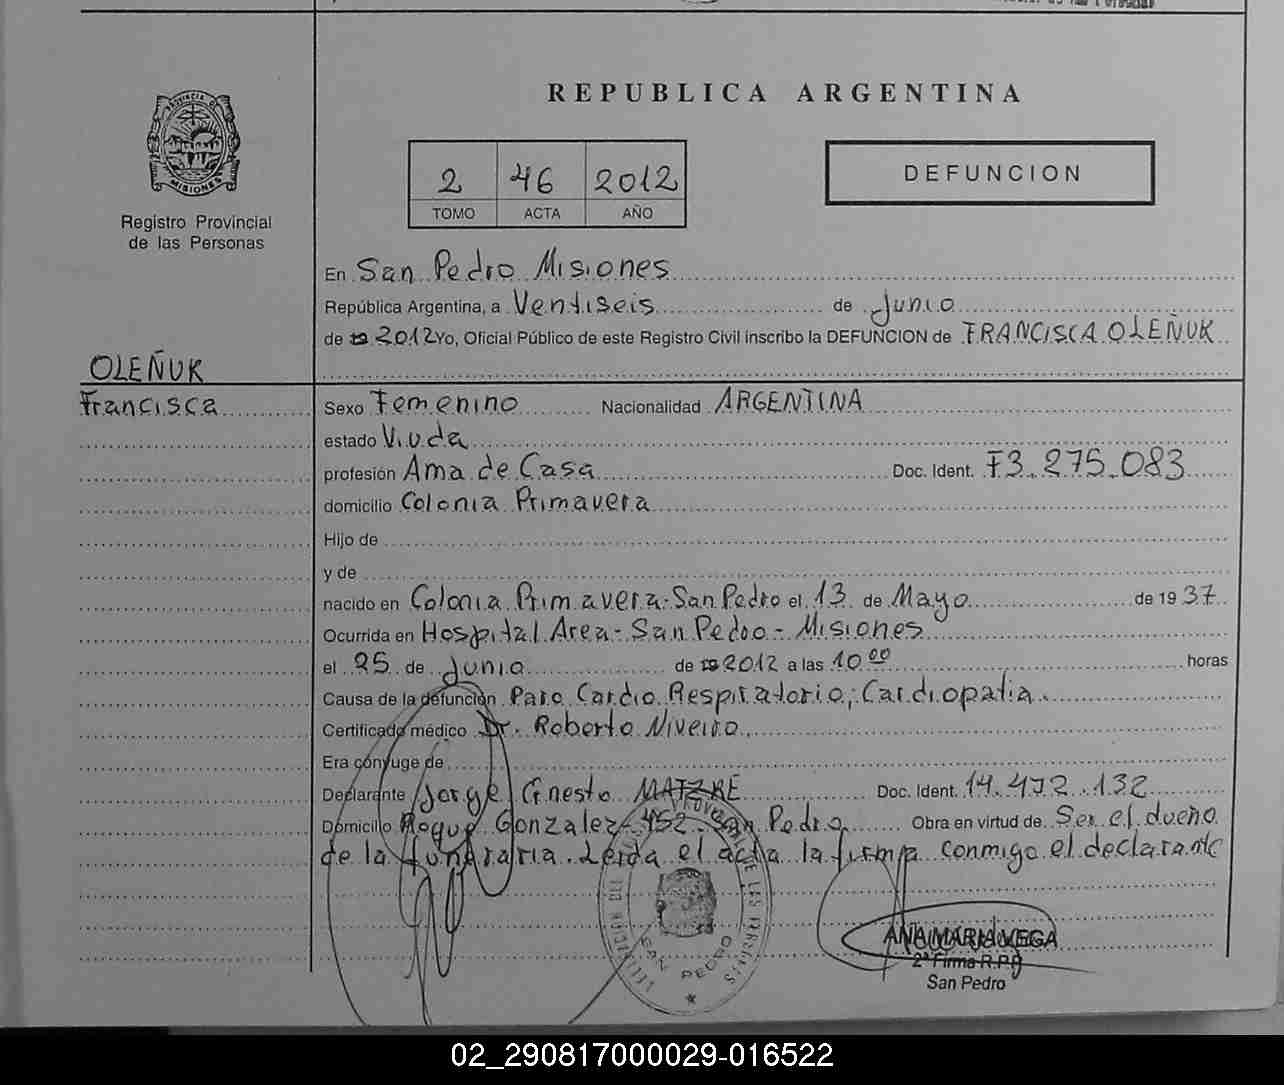 REPUBLICA ARGENTINA
PROVINCIA DE MISIONES
Registro Provincial
de las Personas
2 46 2012
TOMO ACTA AÑO
DEFUNCION
En San Pedro Misiones
República Argentina, a Ventiseis de Junio
de 2012 Yo, Oficial Público de este Registro Civil inscribo la DEFUNCION de FRANCISCA OLEÑUK
OLEÑUK
Francisca
Sexo Femenino Nacionalidad ARGENTINA
estado Viuda
profesión Ama de Casa Doc. Ident. F3.275.083
domicilio Colonia Primavera
Hijo de
y de
nacido en Colonia Primavera-San Pedro el 13 de Mayo de 1937
Ocurrida en Hospital Area-San Pedro-Misiones
el 25 de Junio de 2012 a las 10 00 horas
Causa de la defunción Paro Cardio Respiratorio; Cardiopatia.
Certificado médico Dr. Roberto Niveiro
Era cónyuge de
Declarante Jorge Ernesto MATZKE Doc. Ident. 14.472.132
Domicilio Roque Gonzalez-452-San Pedro Obra en virtud de Ser el dueño
de la funeraria. Leida el acta la firma conmigo el declarante
SAN PEDRO
ANA MARIA VEGA
2ª Firma R.P.P
San Pedro
02_290817000029-016522